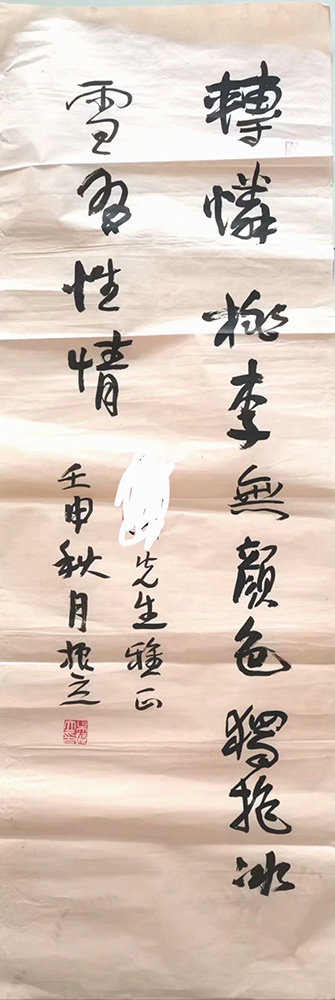 轉憐桃李無顏色獨抱冰
雪為性情
先生雅正
壬申秋月振立